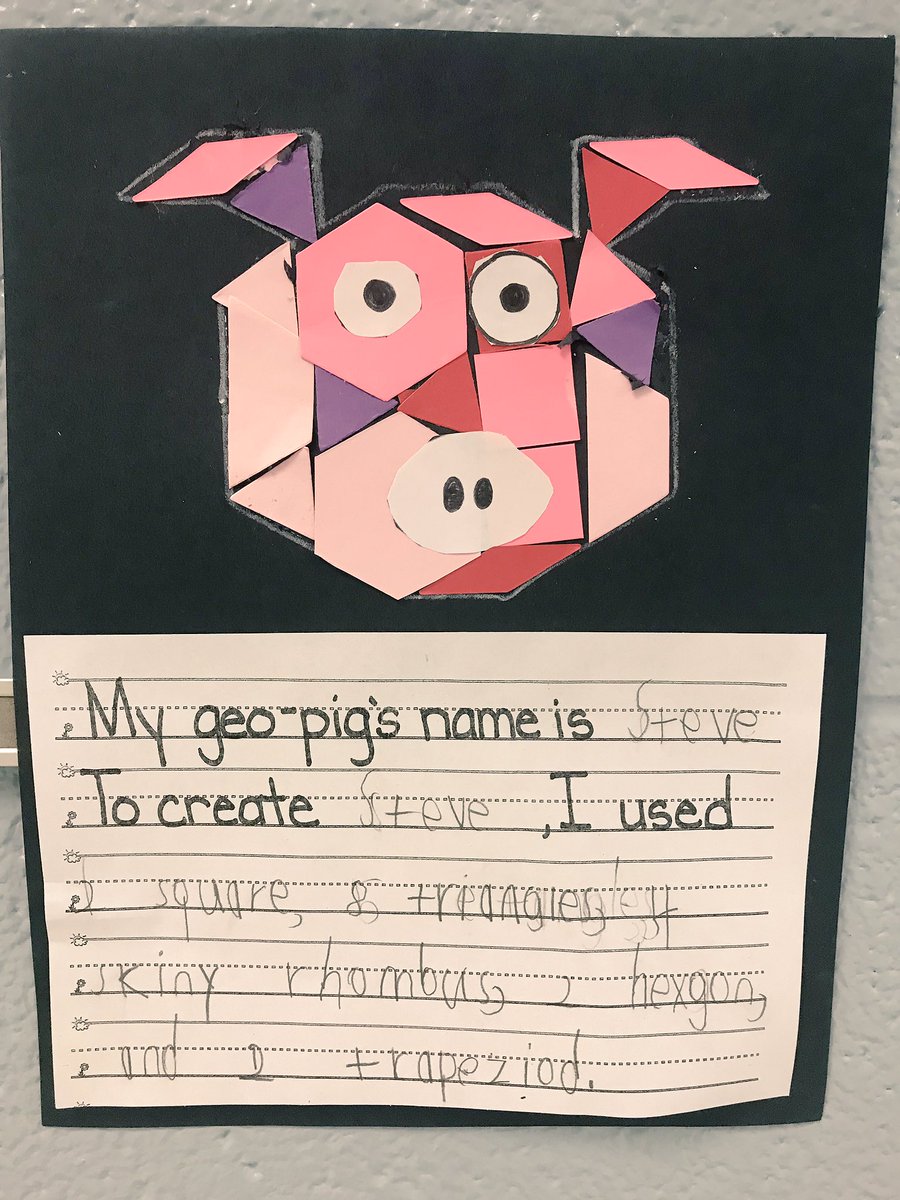 My geo-pig's name is Steve
To create Steve ,I used
square, 8 triangles, 4
skiny rhombus, 2 hexgon,
and 2 trapeziod.